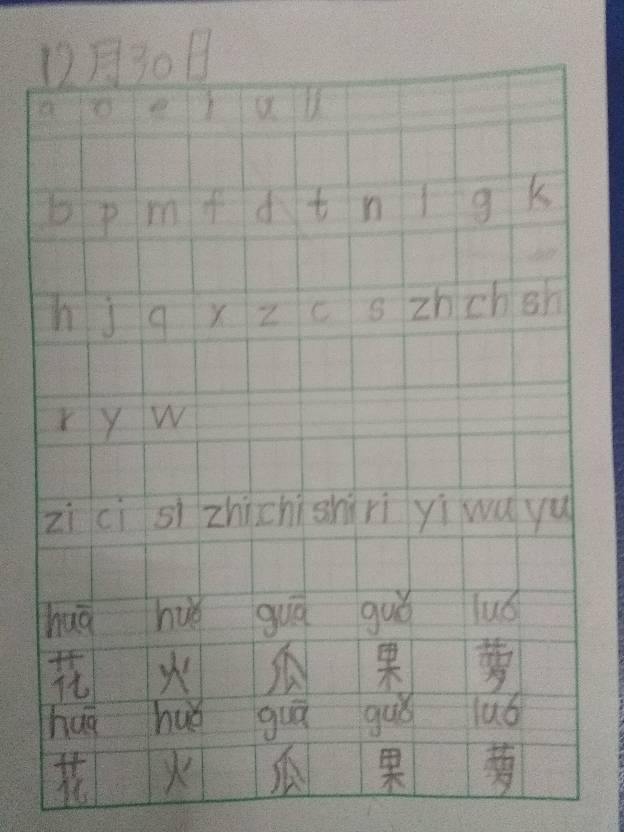 12月30日
a o e i u ü
b p m f d t n l g k
h j q x z c s zh ch sh
r y w
zi ci si zhi chi shi ri yi wu yu
huā huǒ guā guǒ luó
花 火 瓜 果 萝
huā huǒ guā guǒ luó
花 火 瓜 果 萝